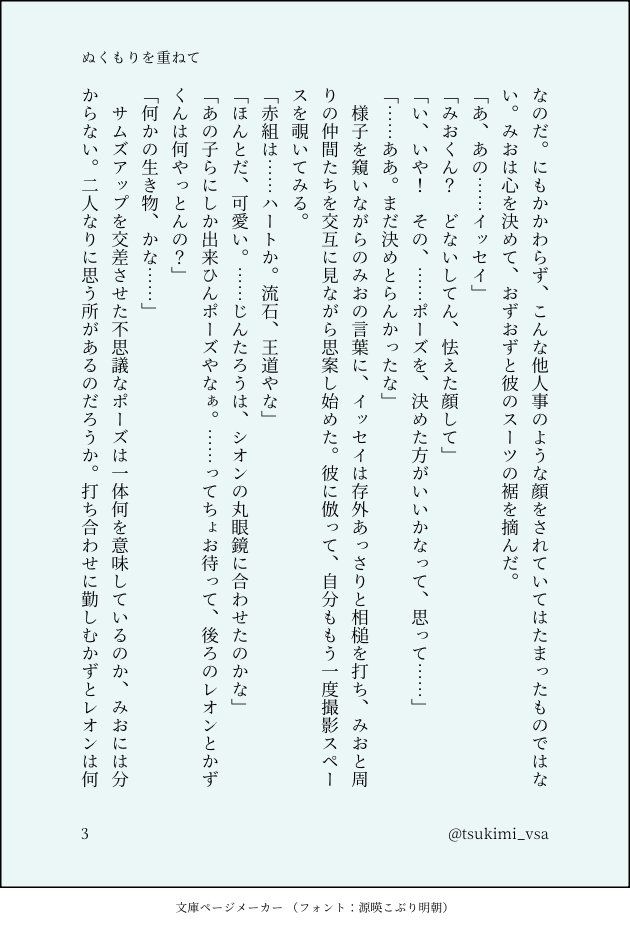 ぬくもりを重ねて
なのだ。にもかかわらず、こんな他人事のような顔をされていてはたまったものではな
い。みおは心を決めて、おずおずと彼のスーツの裾を摘んだ。
「あ、あの……イッセイ」
「みおくん？　どないしてん、怯えた顔して」
「い、いや！　その、……ポーズを、決めた方がいいかなって、思って……」
「……ああ。まだ決めとらんかったな」
　様子を窺いながらのみおの言葉に、イッセイは存外あっさりと相槌を打ち、みおと周
りの仲間たちを交互に見ながら思案し始めた。彼に倣って、自分ももう一度撮影スペー
スを覗いてみる。
「赤組は……ハートか。流石、王道やな」
「ほんとだ、可愛い。……じんたろうは、シオンの丸眼鏡に合わせたのかな」
「あの子らにしか出来ひんポーズやなぁ。……ってちょお待って、後ろのレオンとかず
くんは何やっとんの？」
「何かの生き物、かな……」
　サムズアップを交差させた不思議なポーズは一体何を意味しているのか、みおには分
からない。二人なりに思う所があるのだろうか。打ち合わせに勤しむかずとレオンは何
3
@tsukimi_vsa
文庫ページメーカー（フォント：源暎こぶり明朝）